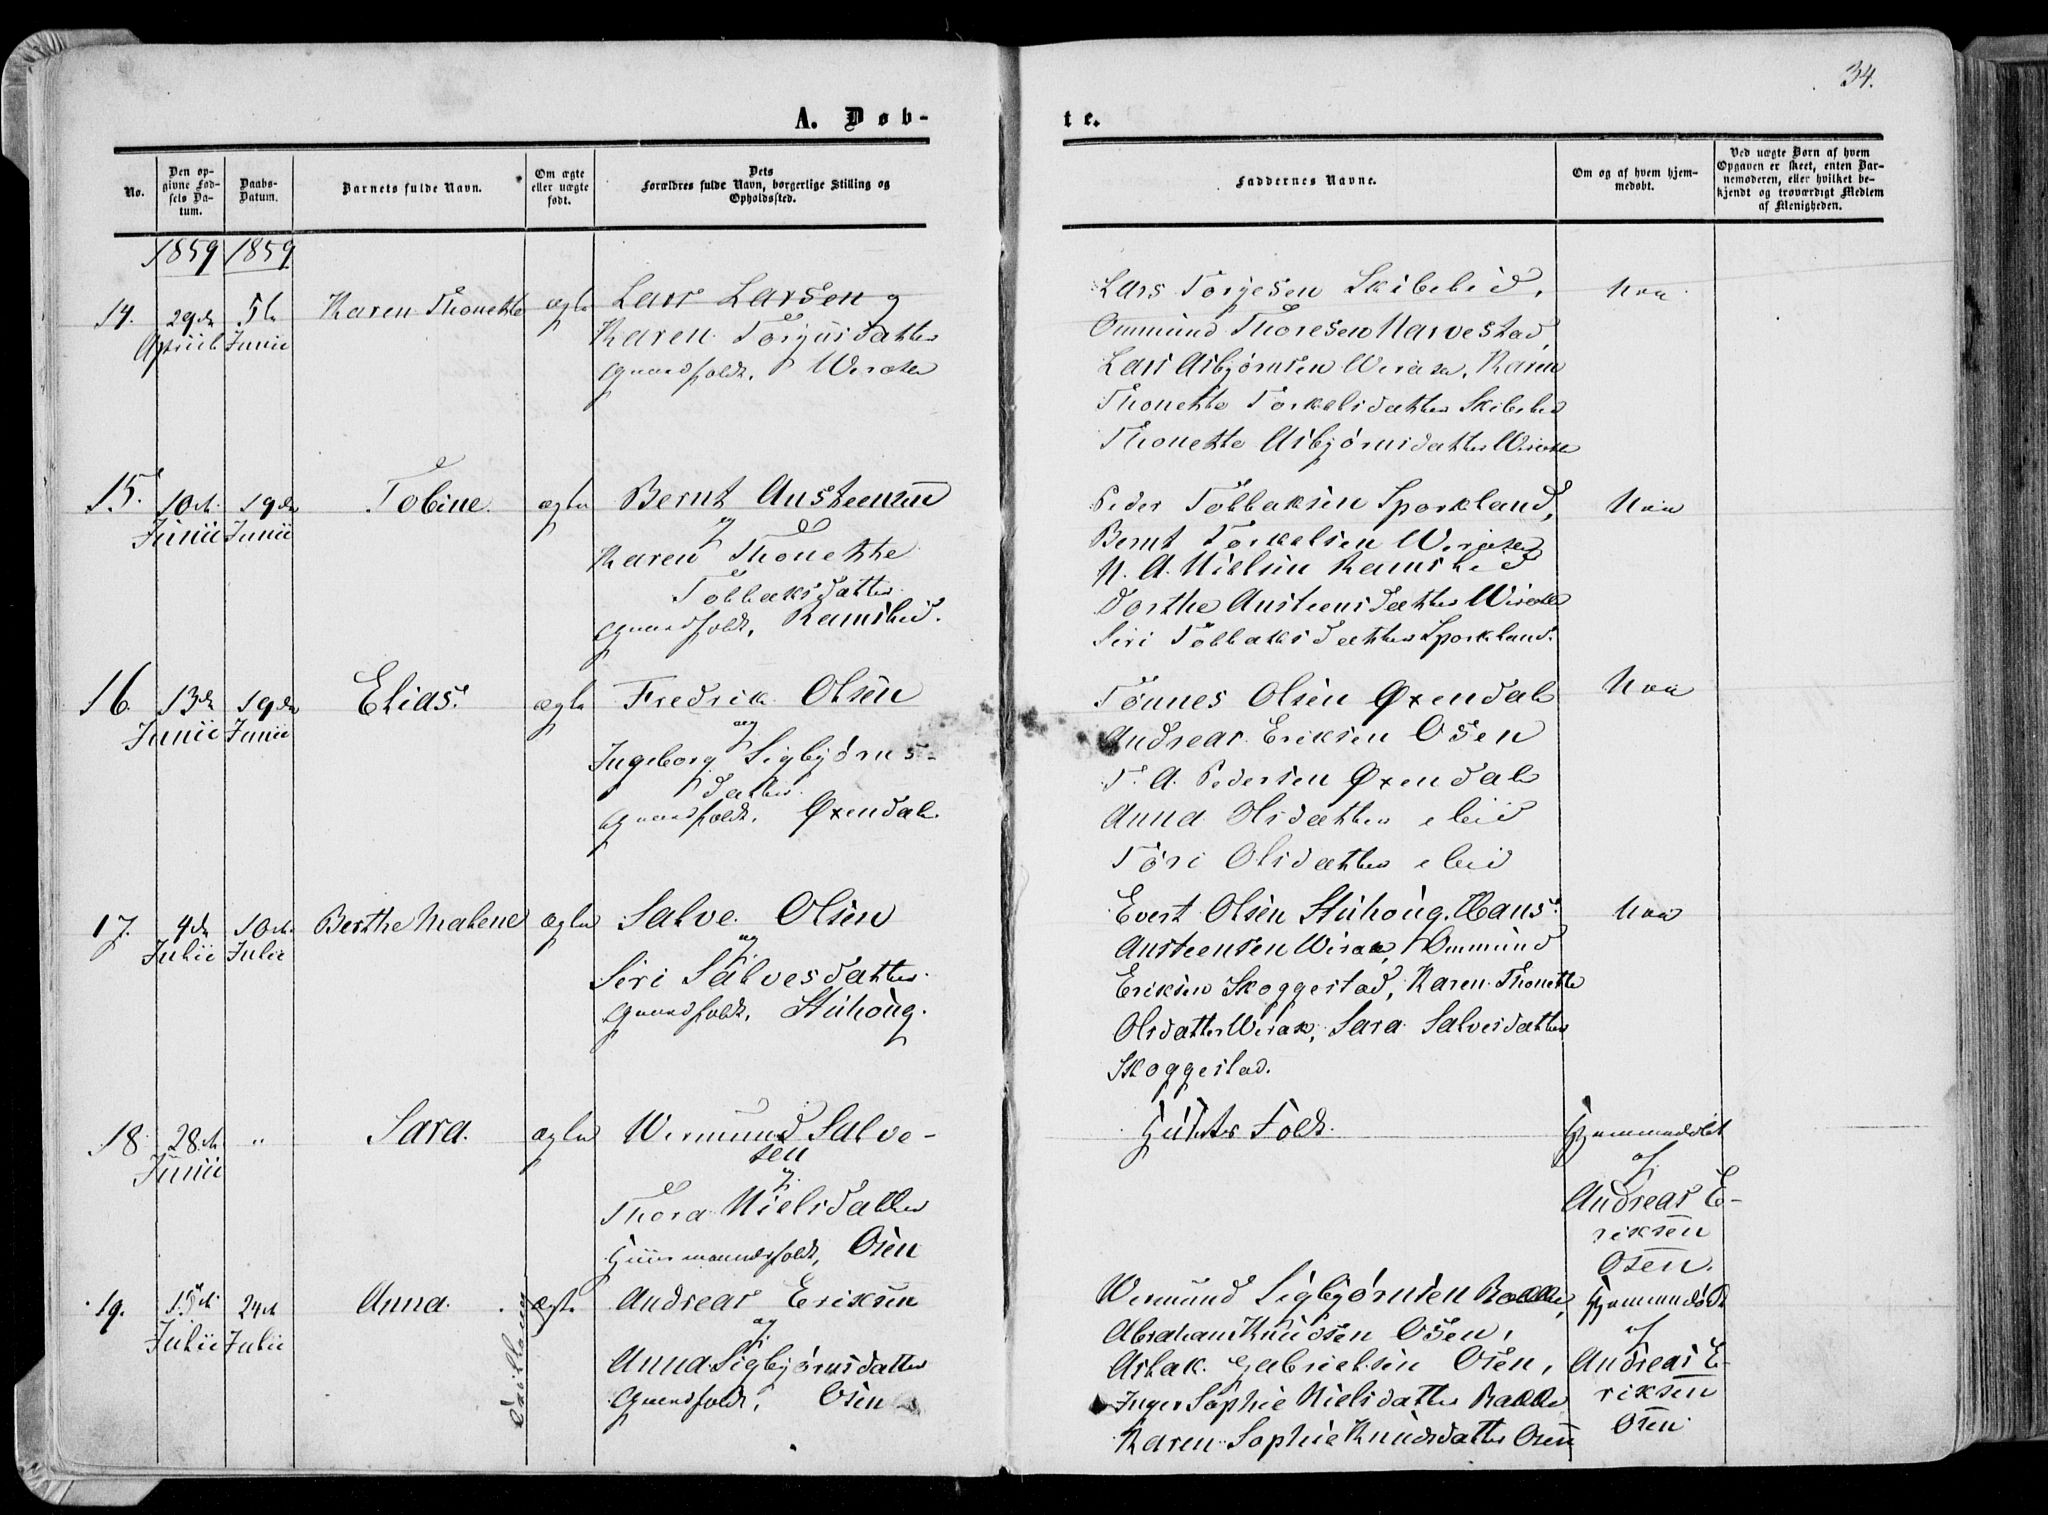 34.
A. Døb-
te.
No.
Den op-
givne Fød-
sels Da-
tum.
Daabs-
Datum.
Barnets fulde Navn.
Om ægte
eller uægte
født.
Dets
Forældres fulde Navn, borgerlige Stilling og
Opholdssted.
Faddernes Navne.
Om og af hvem hjem-
medøbt.
Ved uægte Børn af hvem
Opgaven er skeet, enten Bar-
nemoderen, eller hvilket be-
kjendt og troværdigt Medlem
af Menigheden.
1859 1859
14.
29de
April
5te
Junii
Karen Thonette
ægte
Lars Larsen og
Karen Torjusdatter
Gaardfolk,
Lars Torjesen Skibeled,
Ommund Thoresen Narvestad,
Lars Asbjørnsen Karen
Thonette Torkelsdatter
Thonette Asbjørnsdatter
15.
10de
Junii
19de
Junii
Tobine.
ægte
Bernt Austeensen
og
Karen Thonette
Tollaksdatter
Gaardfolk,
Peder Tollaksen Sporkland,
Bernt Torkelsen
N. A. Nielsen
Dorthe Austeensdatter
Siri Tollaksdatter Sporkland.
16.
13de
Junii
19de
Junii
Elias.
ægte
Fredrik Olsen
og
Ingeborg Sigbjørns-
datter
Gaardfolk. Øxendal.
Tønnes Olsen Øxendal
Andreas Eriksen Osen
T. A. Pedersen Øxendal
Anna Olsdatter ibid
Tøri Olsdatter ibid
17.
4de
Julii
10de
Julii
Berthe Malene
ægte
Salve Olsen
og
Siri Salvesdatter
Gaardfolk, Stuhoug.
Evert Olsen Stuhoug, Hans
Austeensen Wirak, Ommund
Eriksen Skoggestad, Karen Thonette
Olsdatter Wirak, Sara Salvesdatter
Skoggestad.
18.
28de
Junii
"
Sara.
ægte
Wermund Salve-
sen
og
Thora Nielsdatter
Huusmandsfolk, Osen
Hjemmedøbt
af
Andreas E-
riksen
Osen.
19.
15de
Julii
24de
Julii
Anna.
ægte
Andreas Eriksen
og
Anna Sigbjørnsdatter
Gaardfolk, Osen
Wermund Sigbjørnsen
Abraham Knudsen Osen,
Aslak Gabrielsen Osen,
Inger Sophie Nielsdatter
Karen Sophie Knudsdatter Osen
Hjemmedøbt
af
Andreas E-
riksen
Osen